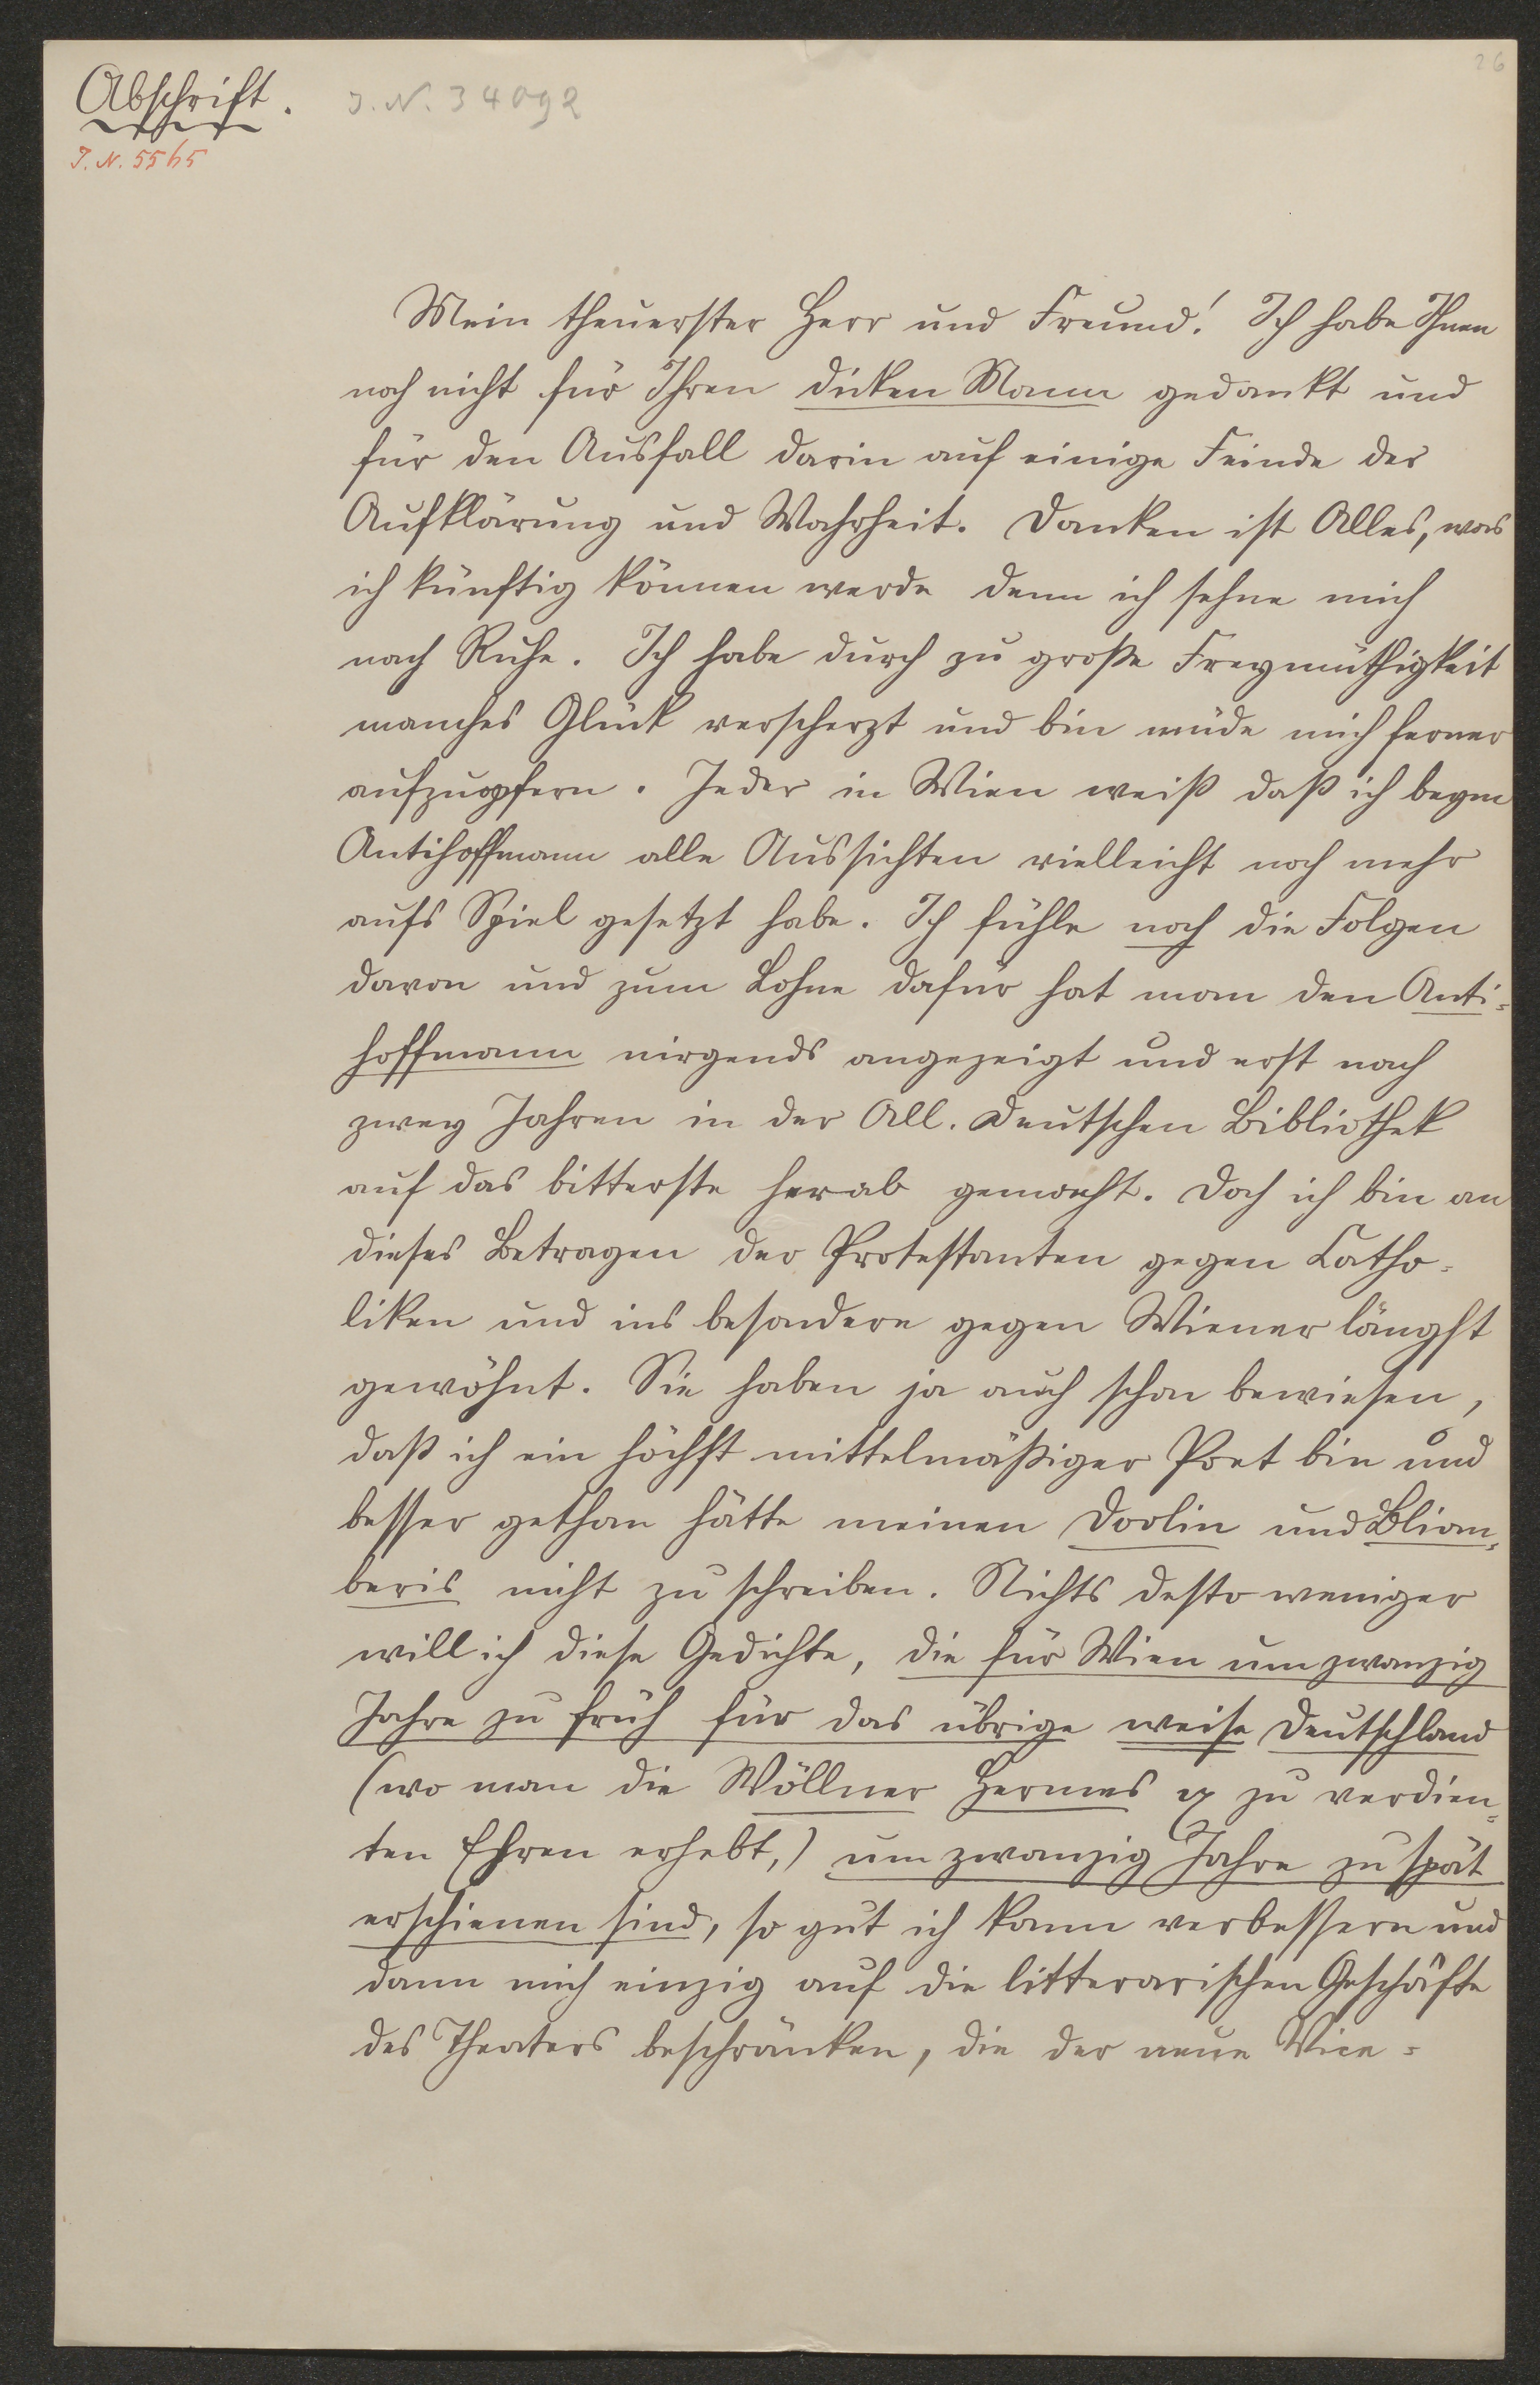 26
Abschrift.
J. N. 34092
J. N. 5565
Mein theuerster Herr und Freund! Ich habe Ihnen
noch nicht für Ihren dicken Mann gedankt und
für den Ausfall darin auf einige Feinde der
Aufklärung und Wahrheit. Danken ist Alles, was
ich künftig können werde denn ich sehne mich
nach Ruhe. Ich habe durch zu große Freymüthigkeit
manches Glück verscherzt und bin müde mich ferner
aufzuopfern. Jeder in Wien weiß daß ich beym
Antihoffmann alle Aussichten vielleicht noch mehr
aufs Spiel gesetzt habe. Ich fühle noch die Folgen
davon und zum Lohne dafür hat man den Anti=
hoffmann nirgends angezeigt und erst nach
zwey Jahren in der All. deutschen Bibliothek
auf das bitterste herab gemacht. Doch ich bin an
dieses Betragen der Protestanten gegen Catho=
liken und ins besondere gegen Wiener längst
gewöhnt. Sie haben ja auch schon bewiesen,
daß ich ein höchst mittelmäßiger Poet bin und
besser gethan hätte meinen Doolin und Blion=
beris nicht zu schreiben. Nichts desto weniger
will ich diese Gedichte, die für Wien um zwanzig
Jahre zu früh für das übrige weise Deutschland
(wo man die Wöllner Hermes &c zu verdien=
ten Ehren erhebt,) um zwanzig Jahre zu spät
erschienen sind, so gut ich kann verbessern und
dann mich einzig auf die litterarischen Geschäfte
des Theaters beschränken, die der neue Vice=